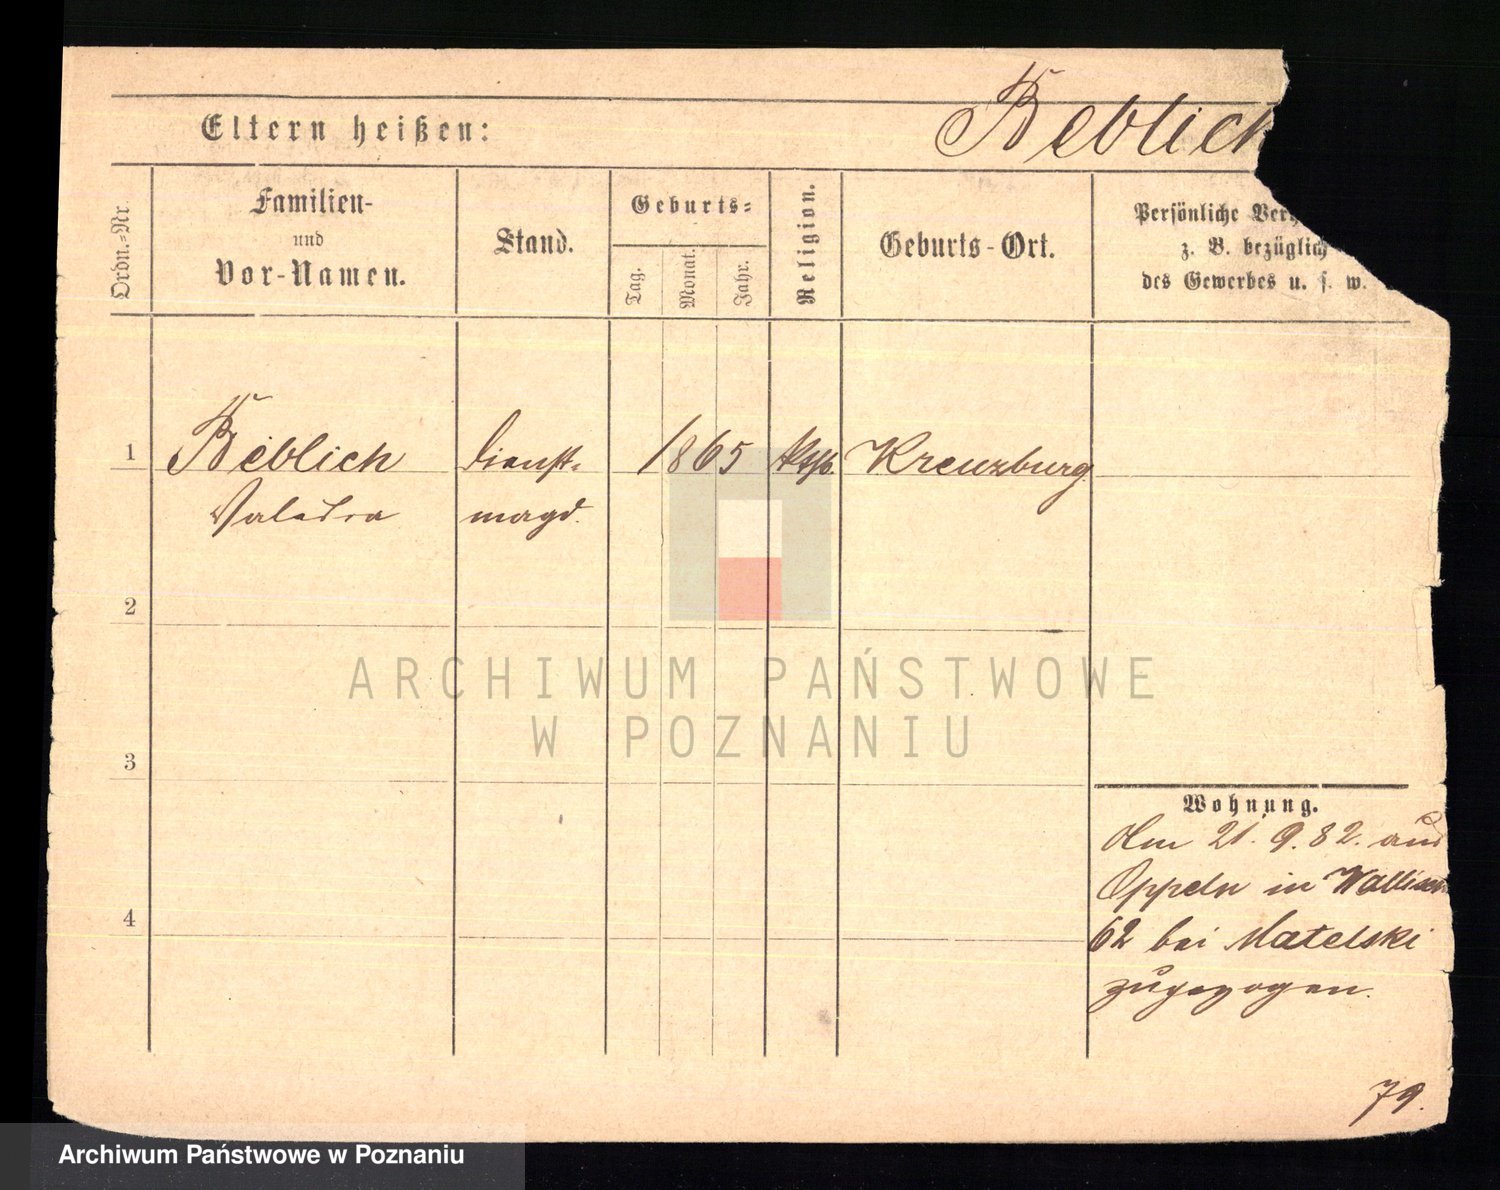 Beblich
Eltern heißen:
Ordn.-Nr.
Familien-
und
Vor-Namen.
Stand.
Geburts-
Tag.
Monat.
Jahr.
Religion.
Geburts-Ort.
Persönliche
z. B. bezüglich
des Gewerbes u. s. w.
1 Beblich Dienst- 1865 kth. Kreuzburg
magd.
2
3
4
Wohnung.
Am 21. 9. 82. aus
Oppeln in
62 bei Matelski
zugezogen.
79.
ARCHIWUM PAŃSTWOWE
W POZNANIU
Archiwum Państwowe w Poznaniu